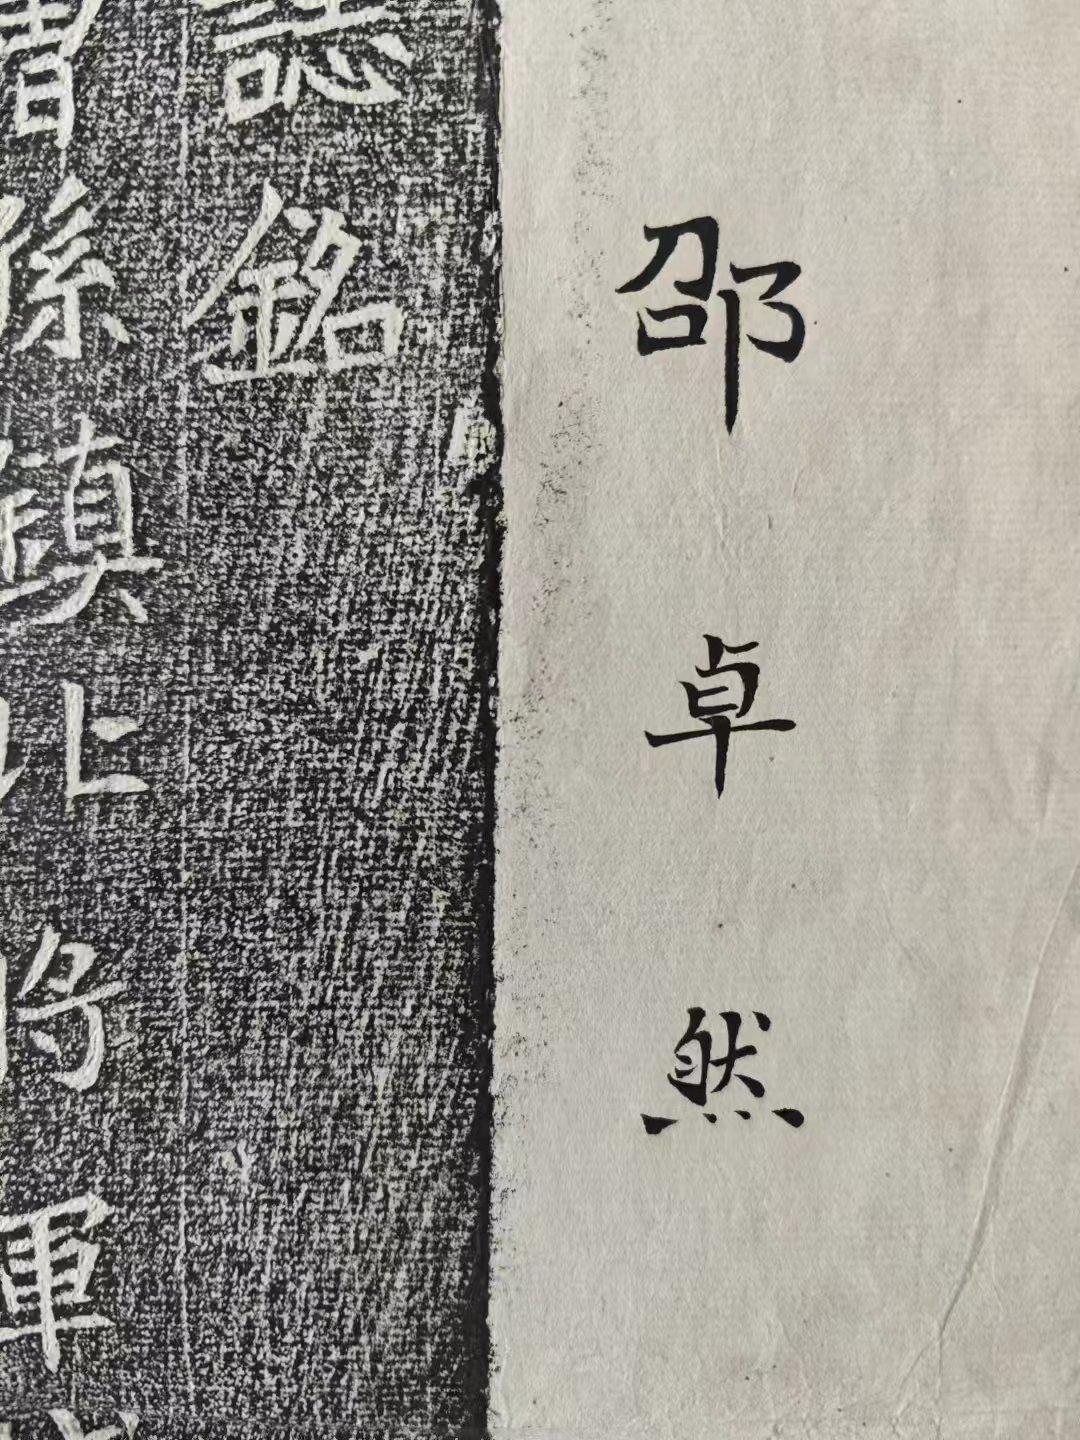 邵卓然
誌銘
曾孫鎮北將軍